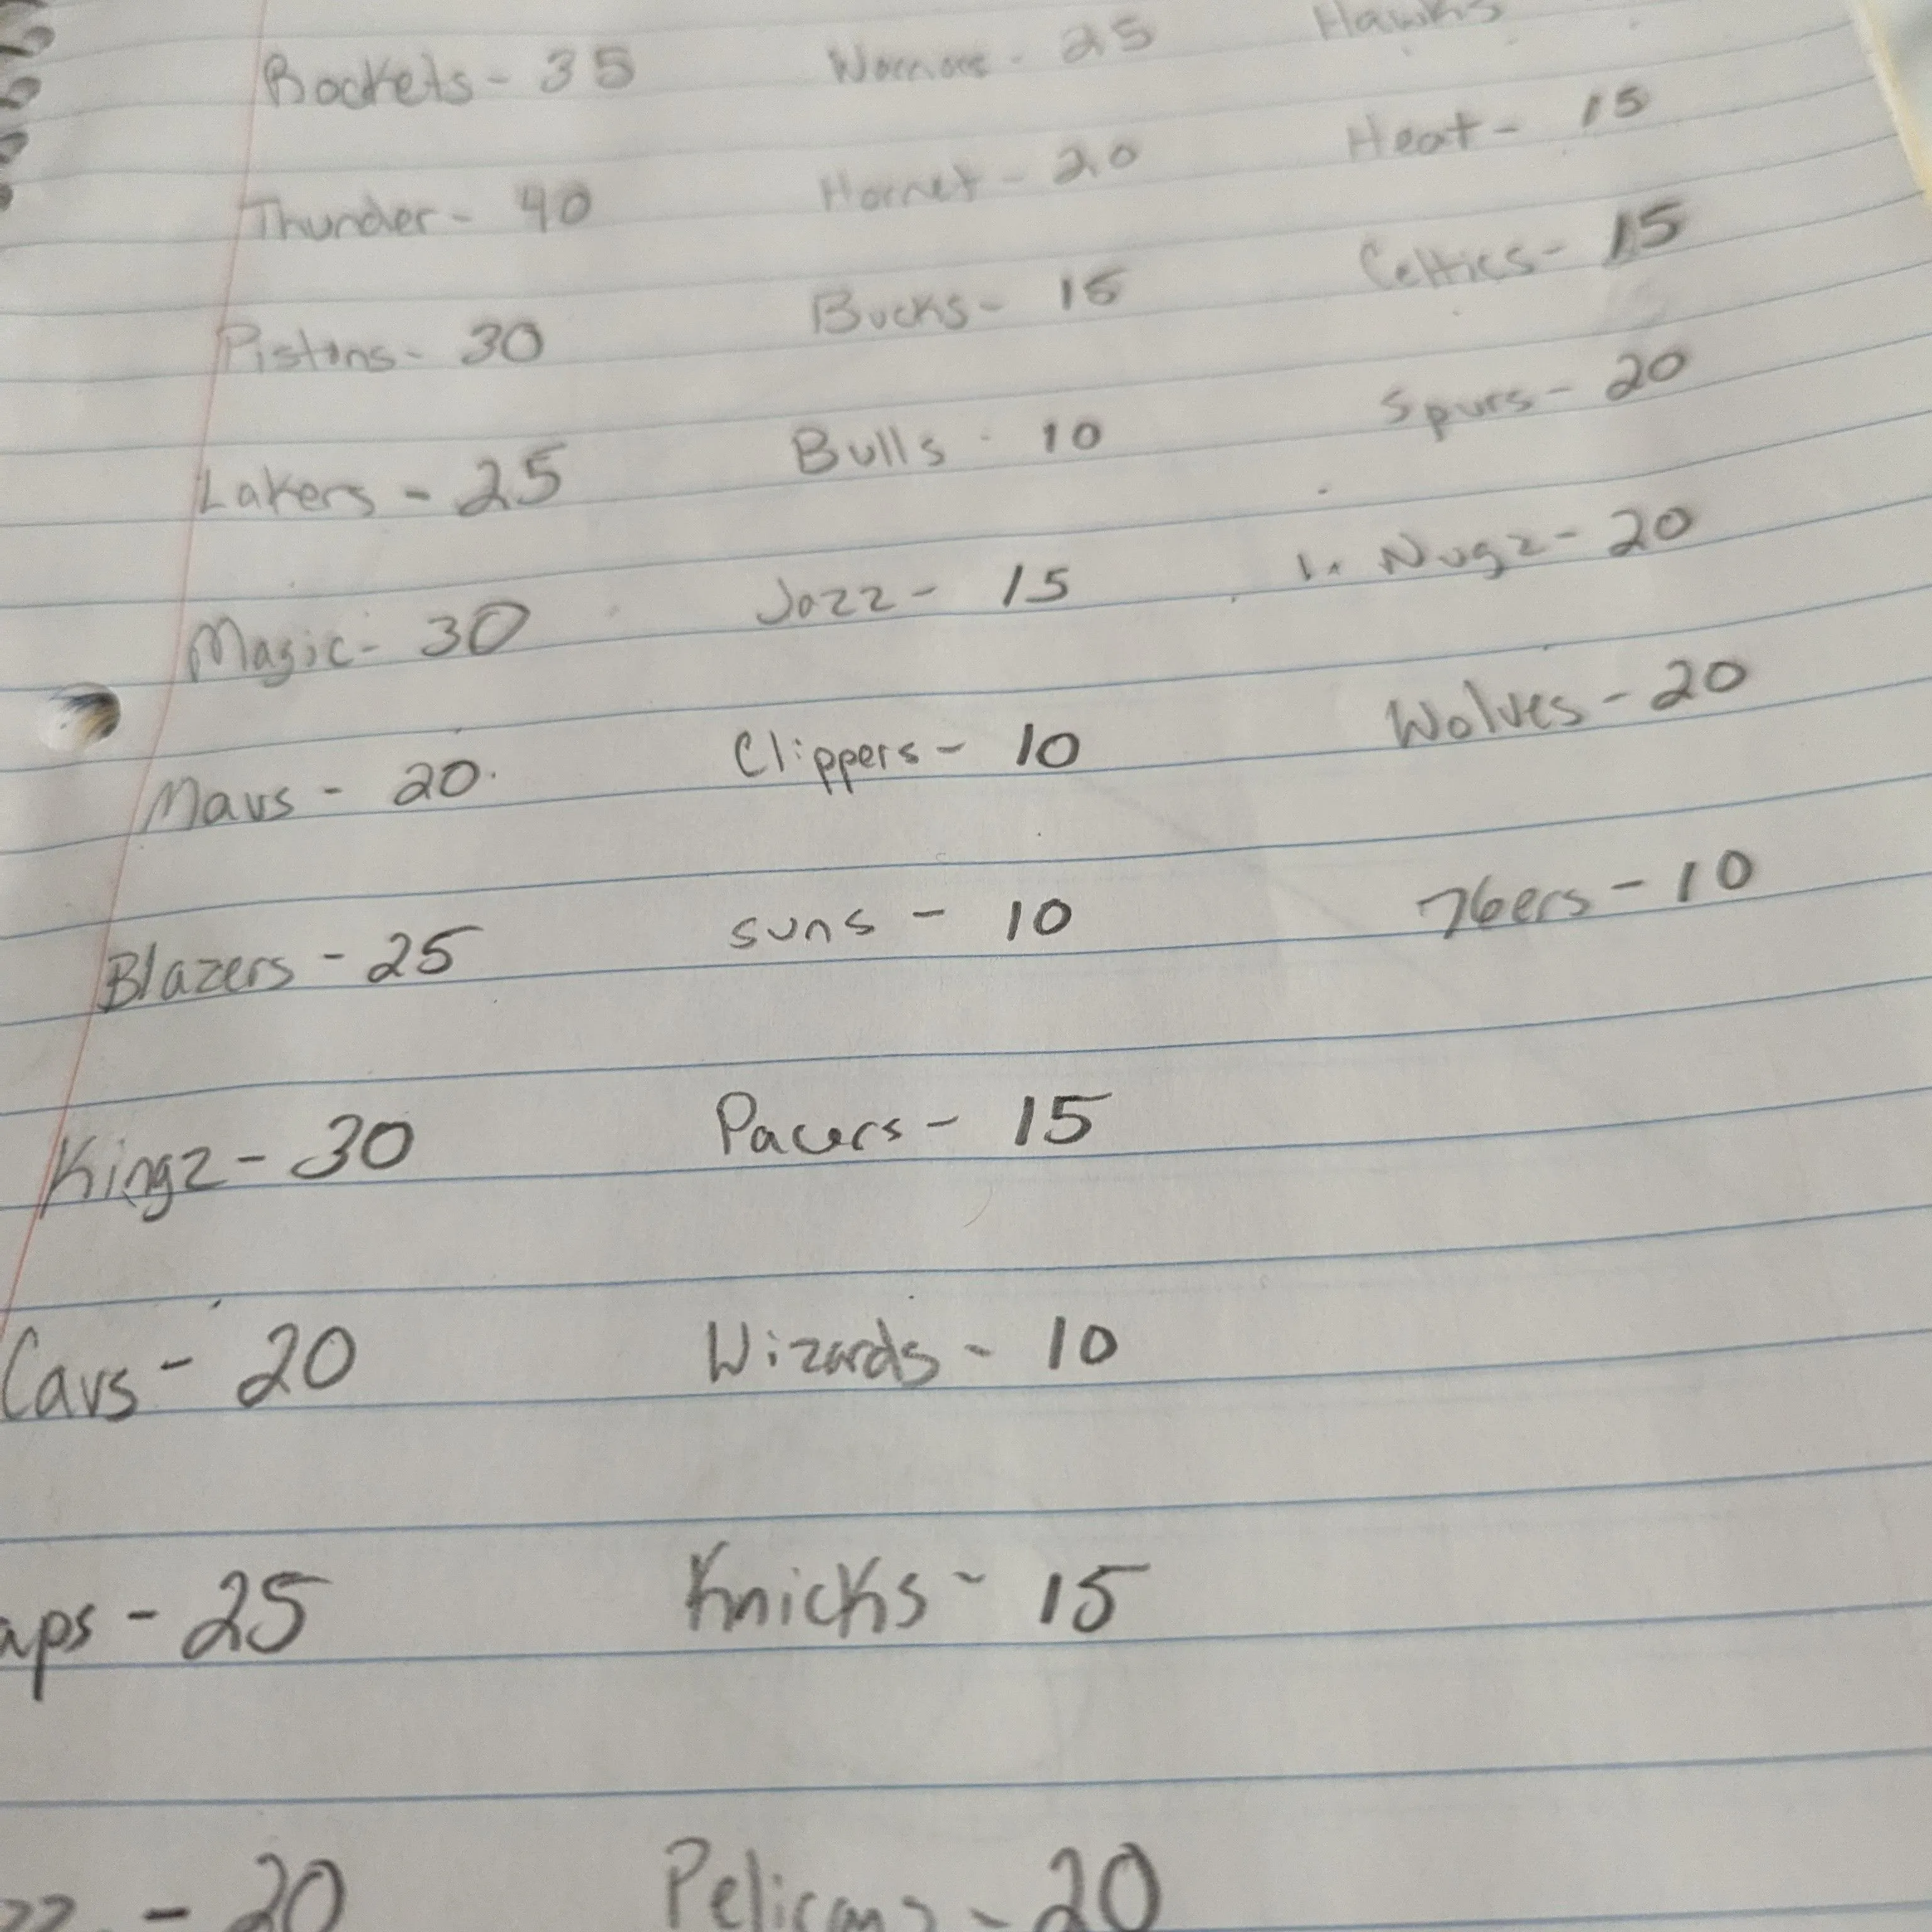 Rockets - 35 Warriors - 25 Hawks
Thunder - 40 Hornet - 20 Heat - 15
Pistons - 30 Bucks - 15 Celtics - 15
Lakers - 25 Bulls - 10 Spurs - 20
Magic - 30 Jazz - 15 1. Nugz - 20
Mavs - 20 Clippers - 10 Wolves - 20
Blazers - 25 Suns - 10 76ers - 10
Kingz - 30 Pacers - 15
Cavs - 20 Wizards - 10
aps - 25 Knicks - 15
zz - 20 Pelicans - 20